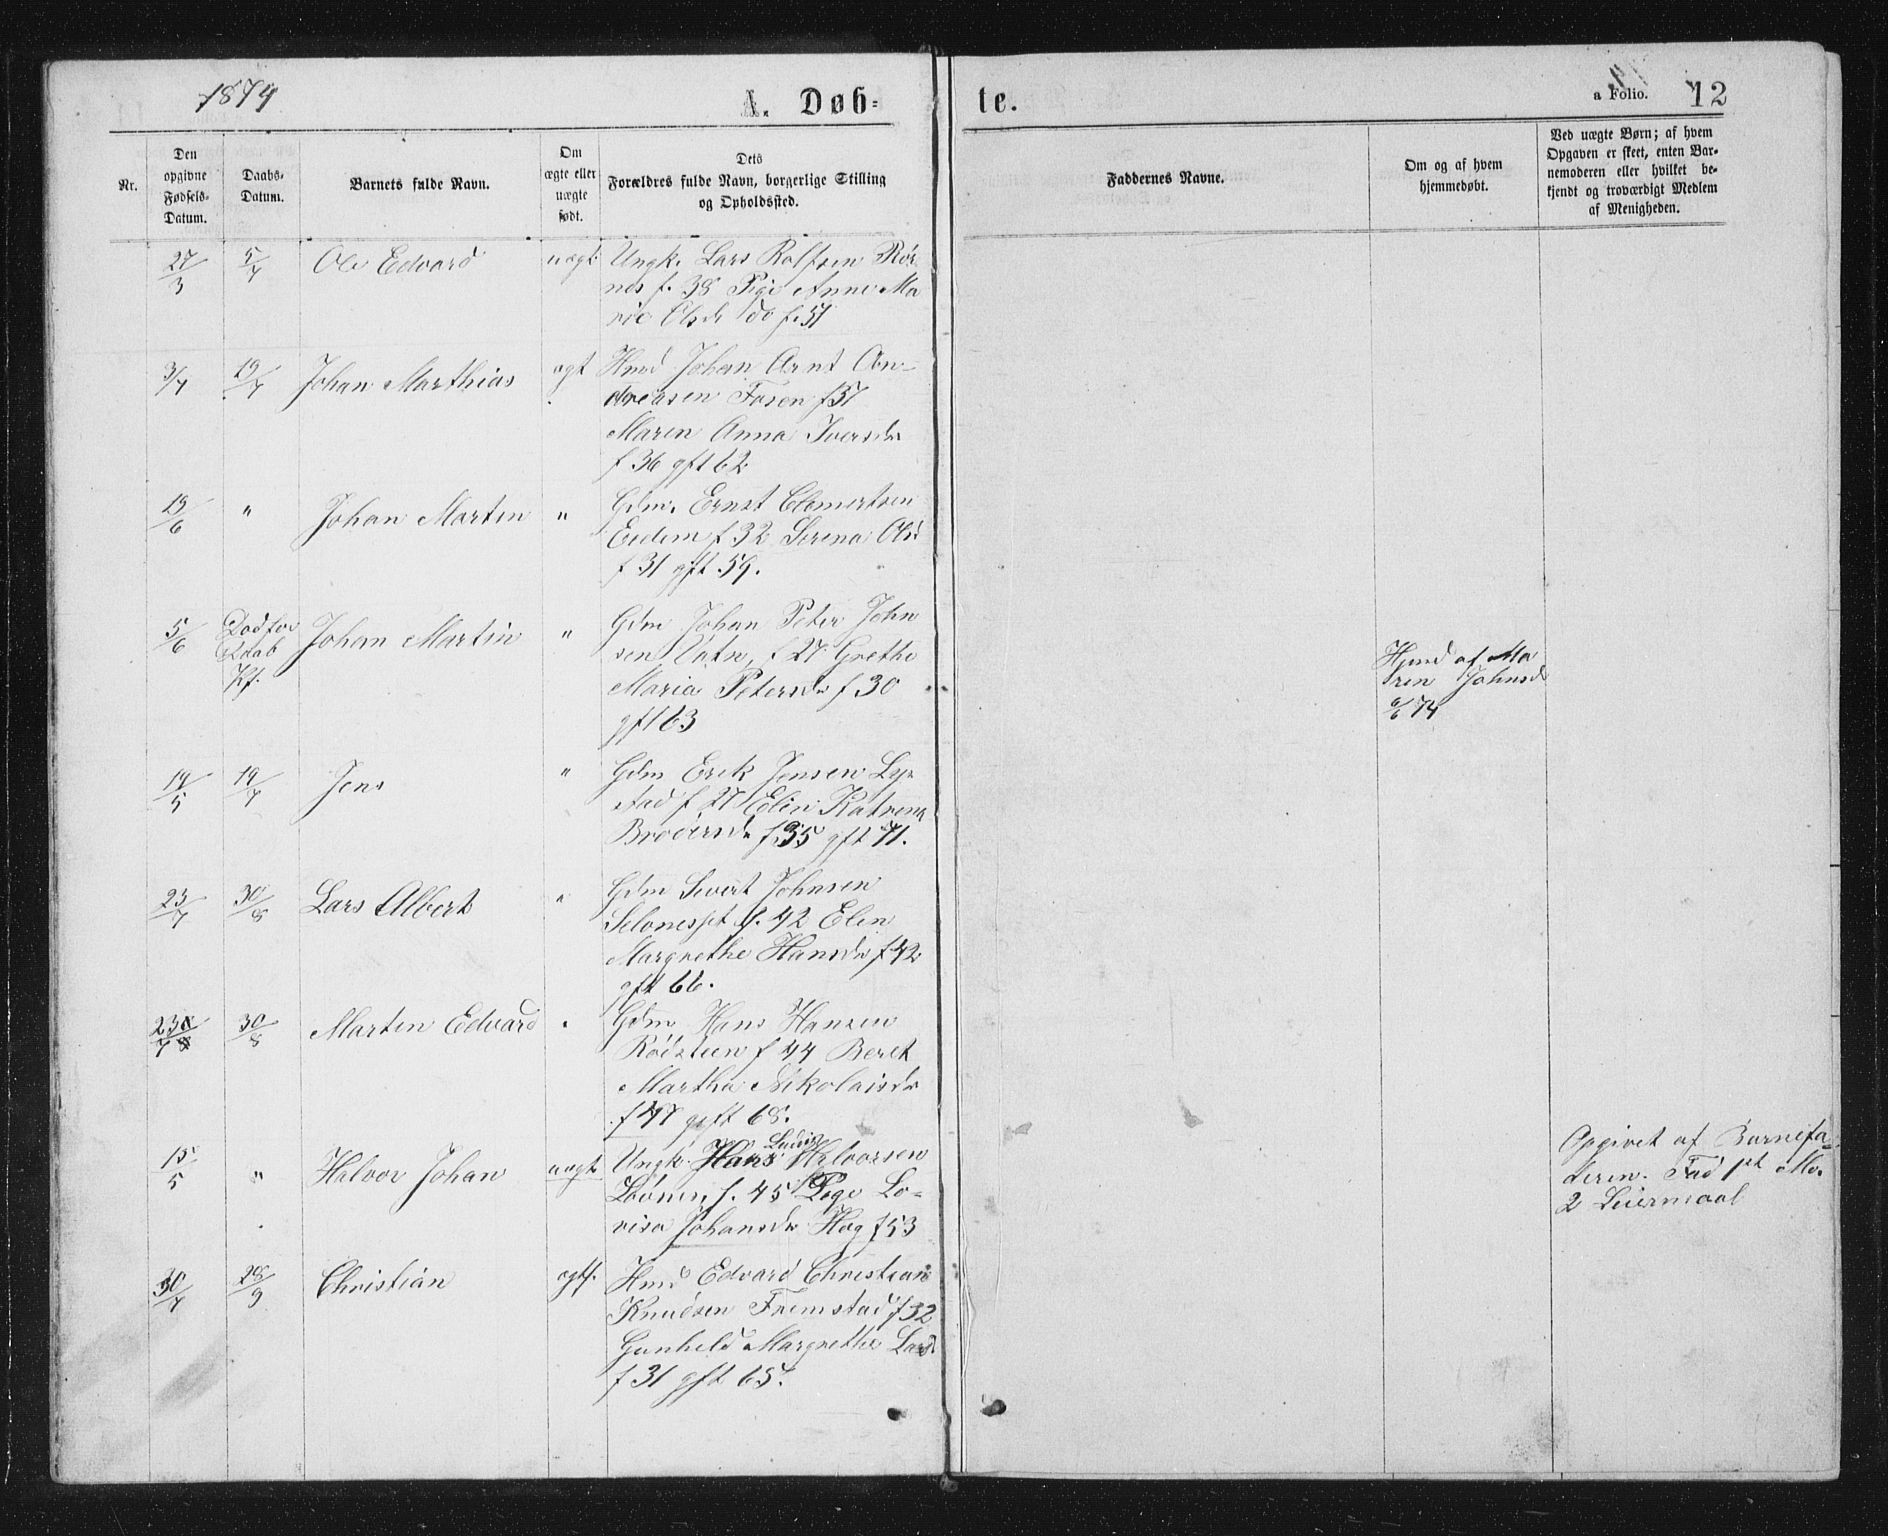 1874
A. Døb-
te.
a Folio. 12
Nr.
Den opgivne Fødsels-Datum.
Daabs-Datum.
Barnets fulde Navn.
Om ægte eller uægte født.
Dets Forældres fulde Navn, borgerlige Stilling og Opholdssted.
Faddernes Navne.
Om og af hvem hjemmedøbt.
Ved uægte Børn; af hvem Opgaven er skeet, enten Bar-nemoderen eller hvilket be-kjendt og troværdigt Medlem af Menigheden.
27/3 5/7 Ole Edvard uægt. Ungk. Lars Rolfsen Rør
nes f. 38 Pige Anne Ma
rie Olsdr do f. 51
3/7 19/7 Johan Marthias ægt Hmd Johan Arnt An-
dreasen Fosen f 37
Maren Anna Iversdr
f 36 gft 62
19/6 " Johan Martin " Gdm. Ernst Clemertsen
Eidem f 32 Serena Olsd
f 31 gft 59.
5/6 Død før Daab Kf. Johan Martin " Gdm Johan Peter John
sen Vatn, f 27 Grethe
Maria Petersdr f 30
gft 63
Hjmd af Ma
ren Johnsd
6/6 74
19/5 19/7 Jens " Gdm Erik Jensen Lys
stad f 27 Elin Katrina
Brodersdr f. 35 gft 71.
23/7 30/8 Lars Albert " Gdm Sivert Johnsen
Selvnesset f. 42 Elen
Margrethe Hansdr f 42
gft 66.
23/7 30/8 Martin Edvard " Gdm Hans Hansen
Rødsteen f 44 Beret
Martha Nikolaisdr
f 47 gift 68.
15/5 " Halvor Johan uægt Ungk. Hans Ludvig Halvorsen
f. 45 Pige Lo-
visa Johansdr Hog f 53
Opgivet af Barnefa-
deren. Fad 1st Mo.
2 Leiermaal
30/7 28/9 Christian ægtf. Hmd Edvard Christian
Knudsen Fremstad f 32
Gunhild Margrethe Larsd
f 31 gft 65.